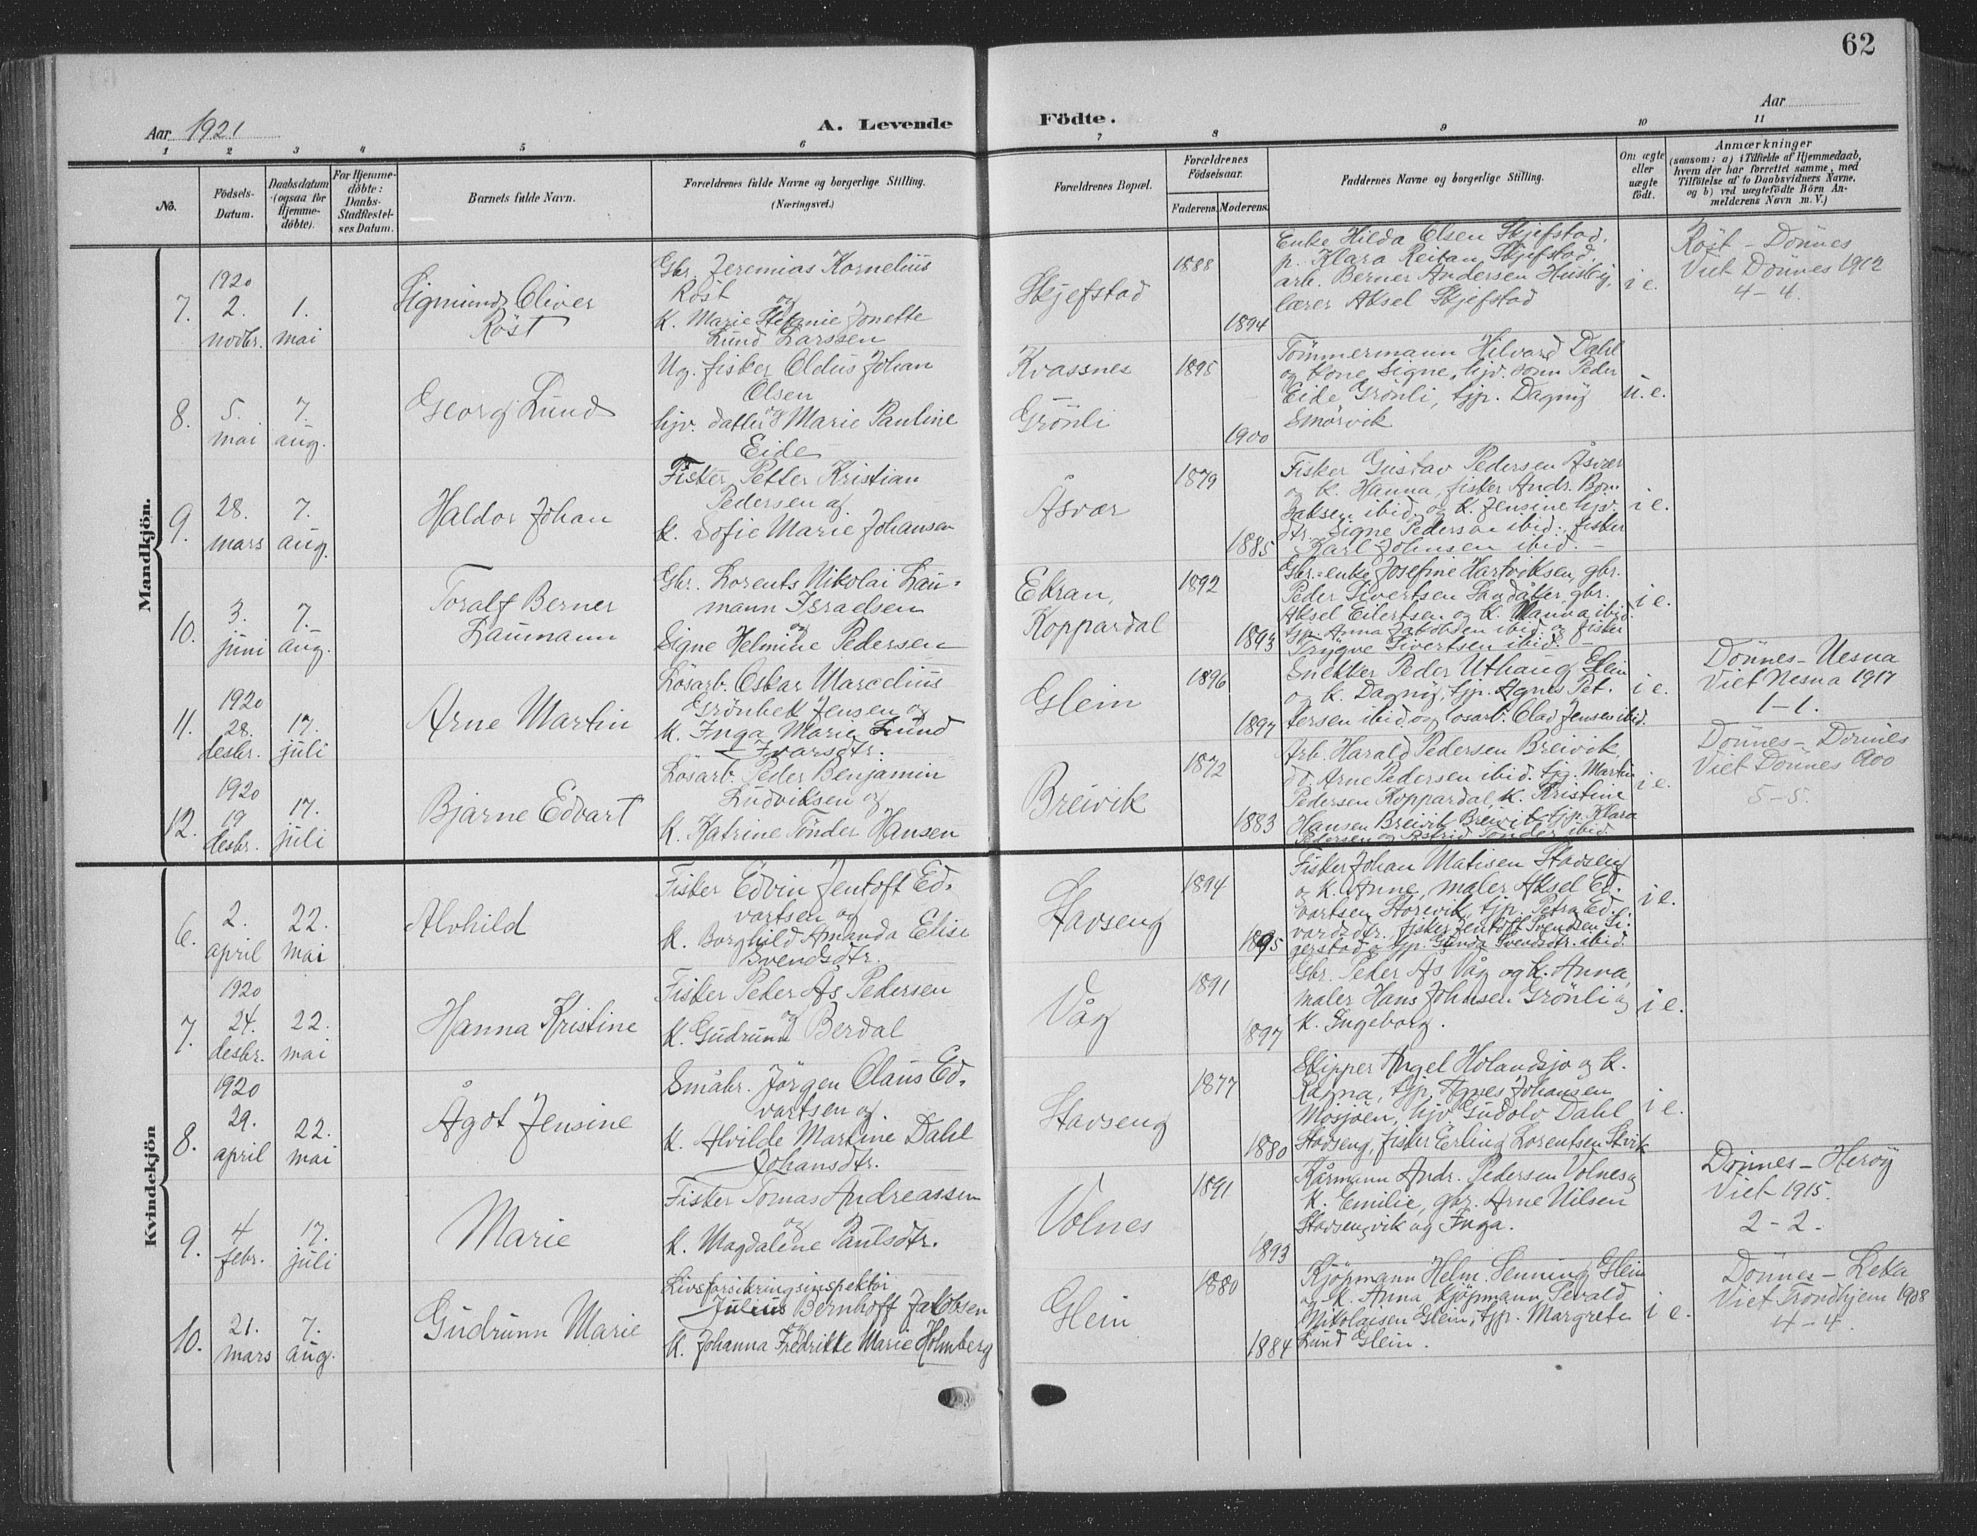 62
Aar 1921
A. Levende
Födte.
Aar
1 2 3 4 5 6 7 8 9 10 11
No.
Födsels-
Datum.
Daabsdatum
(ogsaa for
Hjemme-
døbte).
For Hjemme-
døbte:
Daabs-
Stadfæstel-
ses Datum.
Barnets fulde Navn.
Forældrenes fulde Navne og borgerlige Stilling.
(Næringsvei.)
Forældrenes Bopæl.
Forældrenes
Födselsaar.
Faderens. Moderens.
Faddernes Navne og borgerlige Stilling.
Om ægte
eller
uægte
födt.
Anmærkninger
(saasom: a) i Tilfælde af Hjemmedaab,
hvem der har forrettet samme, med
Tilföielse af to Daabsvidners Navne,
og b) ved uægtefödte Börn An-
melderens Navn m. V.)
Mandkjön.
7.
1920
2.
novbr.
1.
mai
Sigmund Oliver
Röst
Gbr. Jeremias Kornelius
Röst og
K. Marie Stefanie Jonette
Lund Larssen
Skjefstad
1888
1894
Enke Hilda Olsen Skjefstad,
p. Klara Reitan Skjefstad,
arb. Berner Andersen Husby,
lærer Aksel Skjefstad
i e.
Röst - Dönnes
Viet Dönnes 1912
4-4.
8.
5.
mai
7.
aug.
Georg Lund
Ug. fisker Oldus Johan
Olsen
og
hjv. datter Marie Pauline
Eide
Kvassnes
Grönli
1895
1900
Tömmermann Hilvard Dahl
og kone Signe, hjv. sönn Peder
Eide Grönli, tjp. Dagny
Smörvik
u. e.
9.
28.
mars
7.
aug.
Haldor Johan
Fisker Petter Kristian
Pedersen og
K. Sofie Marie Johansen
Åsvær
1879
1885
Fisker Gustav Pedersen Åsvær
og K. Hanna, fisker Andr. Bom
Baksen ibid. og K. Jensine hjv.
dtr. Signe Pedersen ibid. fisker
Karl Johnsen ibid. -
i e.
10.
3.
juni
7.
aug.
Toralf Berner
Laumann
Gbr. Lorents Nikolai Lau-
mann Israelsen
og
Signe Helmine Pedersen
Ekran,
Koppardal
1892
1893
Gbr.-enke Josefine Hartviksen, gbr.
Peder Sivertsen Skogdåber, gbr.
Aksel Eilertsen og K. Hanna ibid.
tjp. Anna Jakobsen ibid. og fisker
Trygve Sivertsen ibid. -
i e.
11.
1920
28.
desbr.
17.
juli
Arne Martin
Lösarb. Oskar Marcelius
Grönbek Jensen og
K. Inga Marie Lund
Ivarsdtr.
Glein
1896
1897
Snekker Peder Uthaug Glein
og K. Dagny, tjp. Agnes Pet.
tersen ibid og losarb. Olaf Jensen ibid.
i e.
Dönnes - Nesna
Viet Nesna 1917
1-1.
12.
1920
19
desbr.
17.
juli
Bjarne Edvart
Lösarb. Peder Benjamin
Ludviksen og
K. Katrine Tönder Hansen
Breivik
1872
1883
Arb. Harald Pedersen Breivik,
do. Arne Pedersen ibid. tjp. Martin
Pedersen Koppardal, K. Kristine
Hansen Breivik Breivik tjp. Klara
Pedersen og Astrid Tönder ibid
i e.
Dönnes - Dönnes
Viet Dönnes 900
5-5.
Kvindekjön
6.
2.
april
22.
mai
Alvhild
Fisker Edvin Jentoft Ed-
vartsen og
K. Borghild Amanda Elise
Svendsdtr.
Stavseng
1894
1895
Fisker Johan Matisen Stavseng
og K. Anne, maler Aksel Ed-
vartsen Storevik, tjp. Petra Ed-
vardsdtr. fisker Jentoft Svendsen Si-
gerstad og tjp. Gunda Svendsdtr. ibid.
i e.
7.
1920
24.
desbr.
22.
mai
Hanna Kristine
Fisker Peder Ås Pedersen
og
K. Gudrun Berdal
Våg
1891
1897
Gbr. Peder Ås Våg og K. Anna,
maler Hans Johnsen Grönli og
K. Ingeborg.
i e.
8.
1920
29.
april
22.
mai
Ågot Jensine
Småbr. Jörgen Claus Ed-
vartsen og
K. Alvilde Martine Dahl
Johansdtr.
Stavseng
1877
1880
Skipper Angel Holandsjo og K.
Ragna, tjp. Agnes Johansen
Mosjöen, hjv Gudolv Dahl
Stavseng, fisker Erling Lorentsen Stvik
i e.
9.
4
febr.
17.
juli
Marie
Fisker Tomas Andreassen
og
K. Magdalene Paulsdtr.
Volnes
1891
1893
Kårmann Andr. Pedersen Volnes og
K. Emilie, gbr. Arne Nilsen
Stavsengvik og Inga.
Dönnes - Heröy
Viet 1915.
2-2.
10.
21.
mars
7.
aug.
Gudrunn Marie
Livsforsikringsinspektör
Julius Bernhoff Jakobsen
og
K. Johanna Fredrikke Marie Holmberg
Glein
1880
1884
Kjöpmann Helm. Senning Glein
og K. Anna, kjöpmann Sevald
Nikolaisen Glein, tjp. Margrete
Lund Glein.
i e.
Dönnes - Leka
Viet Trondhjem 1908
4-4.